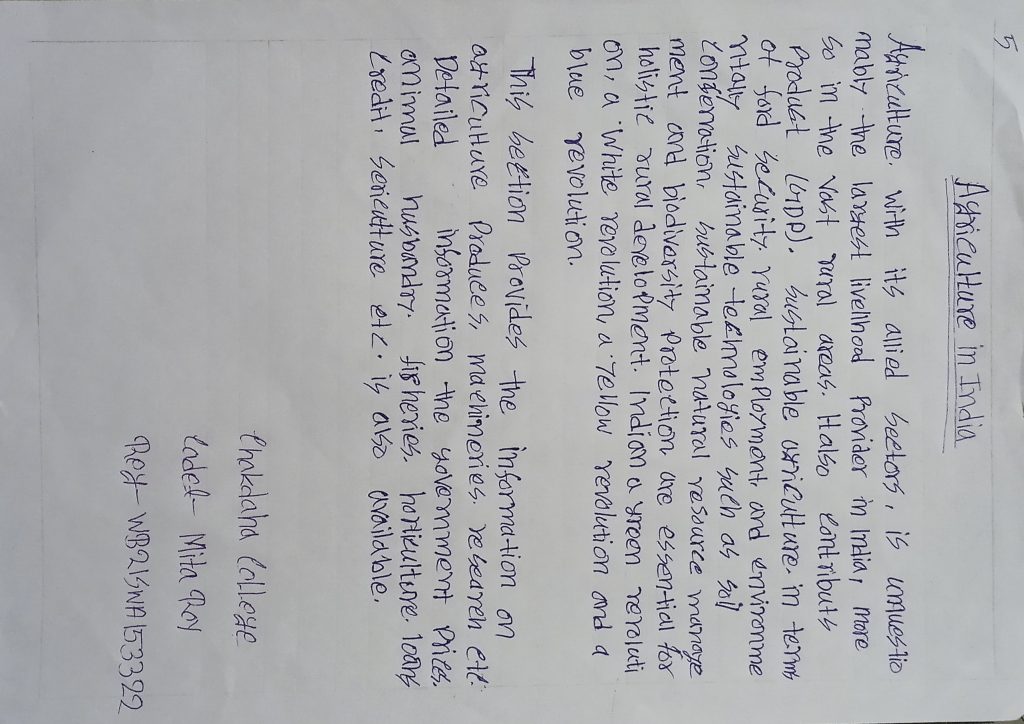 5
Agriculture in India
Agriculture. with its allied sectors, is unquestio
nably the largest livelihood provider in India, more
so in the vast rural areas. Halso contributs
Product (GDP). sustainable agriculture. in terms
of food security. rural employment, and environme
ntaly sustainable technologies such as soil
conservation, sustainable natural resource manage
ment and biodiversity protection are essential for
holistic rural development. Indian a green revoluti
on, a White revolution, a Yellow revolution and a
blue revolution.
This section Provides the information on
agriculture Produces, machineries. research etc.
Detailed information the government Prices.
animal husbandry. fisheries. horticulture. loans
credit, sericulture etc. is also available.
Chakdaha College
Cadet- Mita Roy
Reg- WB21SWA153322